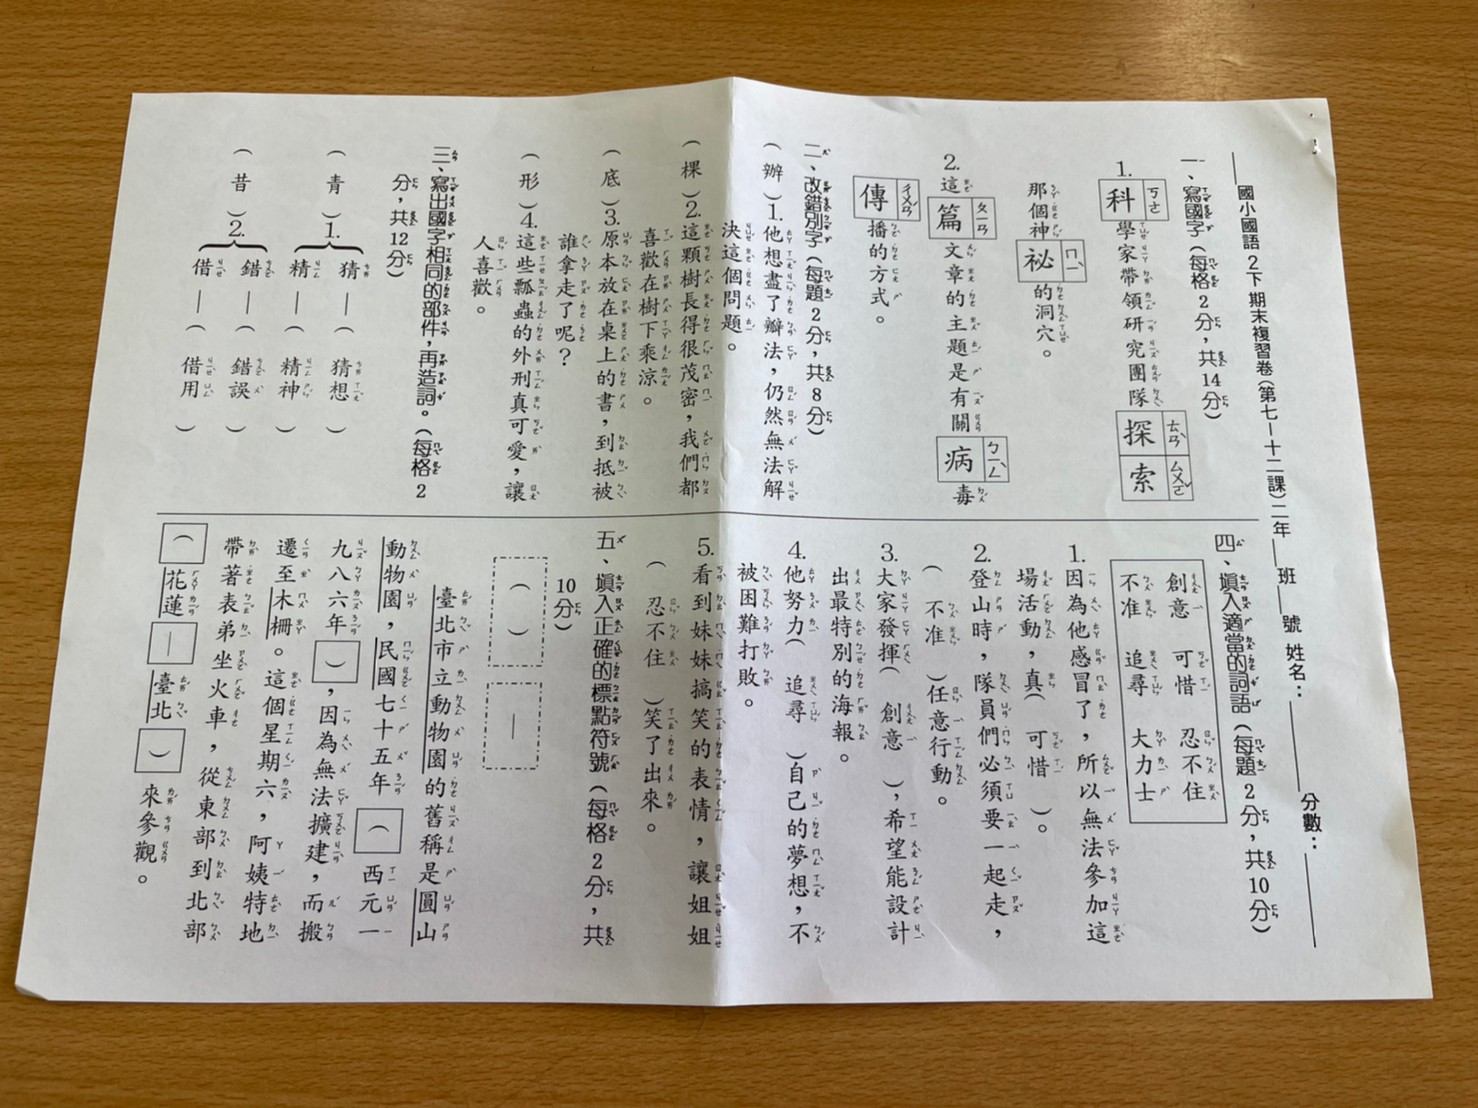 ＿＿國小國語2下 期末複習卷(第七～十二課)二年＿＿班＿＿號 姓名：＿＿＿＿ 分數：＿＿＿＿
一、寫國字(每格2分，共14分)
1.科ㄎㄜ學家帶領研究團隊探ㄊㄢˋ索ㄙㄨㄛˇ
那個神祕ㄇㄧˋ的洞穴。
2.這篇ㄆㄧㄢ文章的主題是有關病ㄅㄧㄥˋ毒
傳ㄔㄨㄢˊ播的方式。
二、改錯別字(每題2分，共8分)
(辦)1.他想盡了辦法，仍然無法解
決這個問題。
(棵)2.這顆樹長得很茂密，我們都
喜歡在樹下乘涼。
(底)3.原本放在桌上的書，到抵被
誰拿走了呢？
(形)4.這些瓢蟲的外刑真可愛，讓
人喜歡。
三、寫出國字相同的部件，再造詞。(每格2
分，共12分)
(青)1.{猜—(猜想)
精—(精神)
(昔)2.{錯—(錯誤)
借—(借用)
四、填入適當的詞語(每題2分，共10分)
創意 可惜 忍不住
不准 追尋 大力士
1.因為他感冒了，所以無法參加這
場活動，真(可惜)。
2.登山時，隊員們必須要一起走，
(不准)任意行動。
3.大家發揮(創意)，希望能設計
出最特別的海報。
4.他努力(追尋)自己的夢想，不
被困難打敗。
5.看到妹妹搞笑的表情，讓姐姐
(忍不住)笑了出來。
五、填入正確的標點符號(每格2分，共
10分)
( ) —
臺北市立動物園的舊稱是圓山
動物園，民國七十五年(西元一
九八六年)，因為無法擴建，而搬
遷至木柵。這個星期六，阿姨特地
帶著表弟坐火車，從東部到北部
(花蓮—臺北)來參觀。